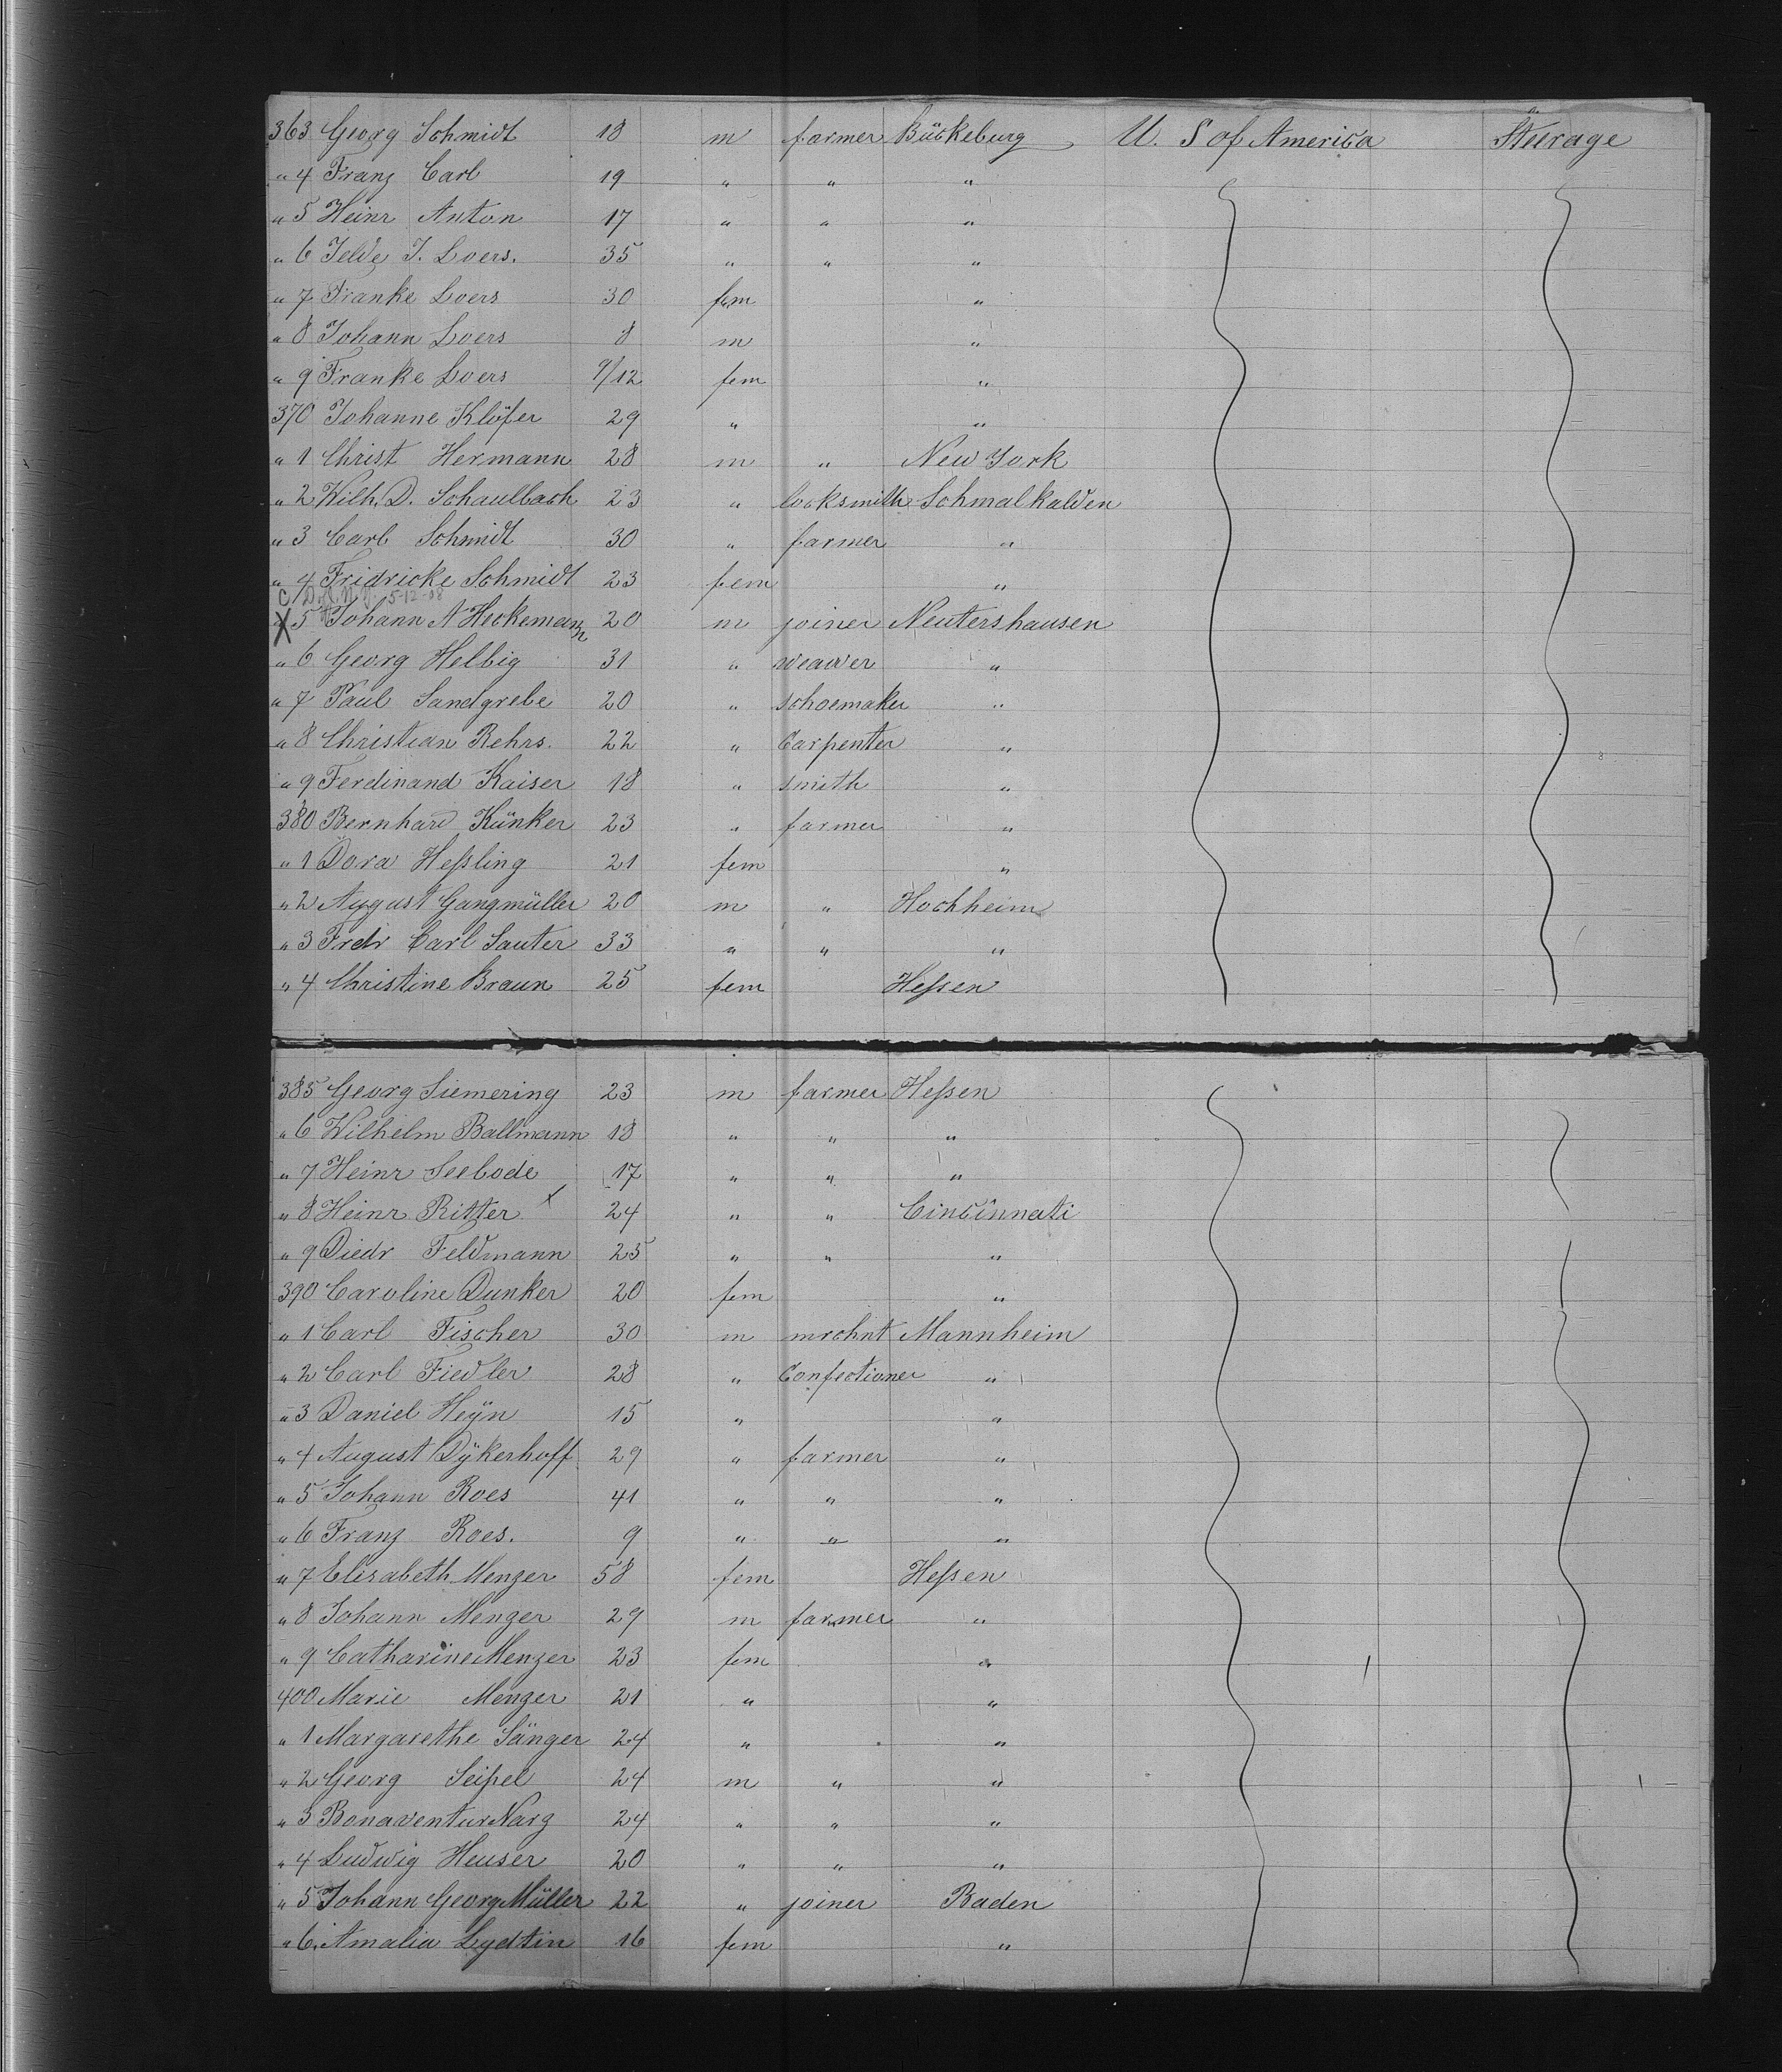 363 Georg Schmidt 18 m farmer Bückeburg U. S of America Steerage
" 4 Franz Carl 19 " " "
" 5 Heinr Anton 17 " " "
" 6 Jelde J. Loers. 35 " " "
" 7 Franke Loers 30 fem "
" 8 Johann Loers 8 m "
" 9 Franke Loers 9/12 fem "
370 Johanne Klöfer 29 " "
" 1 Christ Hermann 28 m " New York
" 2 Wilh. D. Schaulbach 23 " locksmith Schmalkalden
" 3 Carl Schmidt 30 " farmer "
" 4 Fridricke Schmidt 23 fem "
5-12-08
X 5 Johann A Heckemann 20 m joiner Neutershausen
" 6 Georg Helbig 31 " weawer "
" 7 Paul Sandgrebe 20 " schoemaker "
" 8 Christian Rehrs. 22 " Carpenter "
" 9 Ferdinand Kaiser 18 " smith "
380 Bernhard Künker 23 " farmer "
" 1 Dora Heßling 21 fem "
" 2 August Gangmüller 20 m " Hochheim
" 3 Fredr Carl Sauter 33 " " "
" 4 Christine Braun 25 fem Heßen
385 Georg Siemering 23 m farmer Heßen
" 6 Wilhelm Ballmann 18 " " "
" 7 Heinr Seebode 17 " " "
" 8 Heinr Ritter x 24 " " Cincinnati
" 9 Diedr Feldmann 25 " " "
390 Caroline Dunker 20 fem "
" 1 Carl Fischer 30 m mrchnt Mannheim
" 2 Carl Fiedler 28 " Confectioner "
" 3 Daniel Heÿn 15 " "
" 4 August Dÿkerhoff 29 " farmer "
" 5 Johann Roes 41 " " "
" 6 Franz Roes. 9 " " "
" 7 Elisabeth Menger 58 fem Heßen
" 8 Johann Menger 29 m farmer "
" 9 Catharine Menger 23 fem "
400 Marie Menger 21 " "
" 1 Margarethe Sänger 24 " "
" 2 Georg Seipel 24 m " "
" 3 Bonaventur Narz 24 " " "
" 4 Ludwig Heuser 20 " " "
" 5 Johann Georg Müller 22 " joiner Baden
" 6. Amalia Lydtin 16 fem "